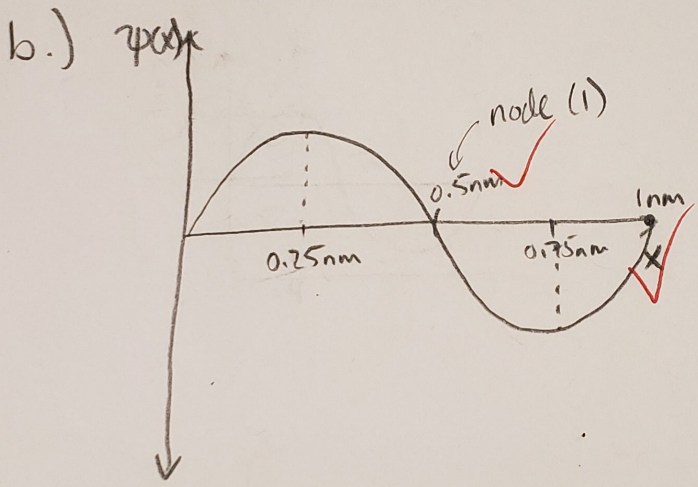 b.) ψ(x)
node (1)
0.5nm
1nm
0.25nm
0.75nm
x